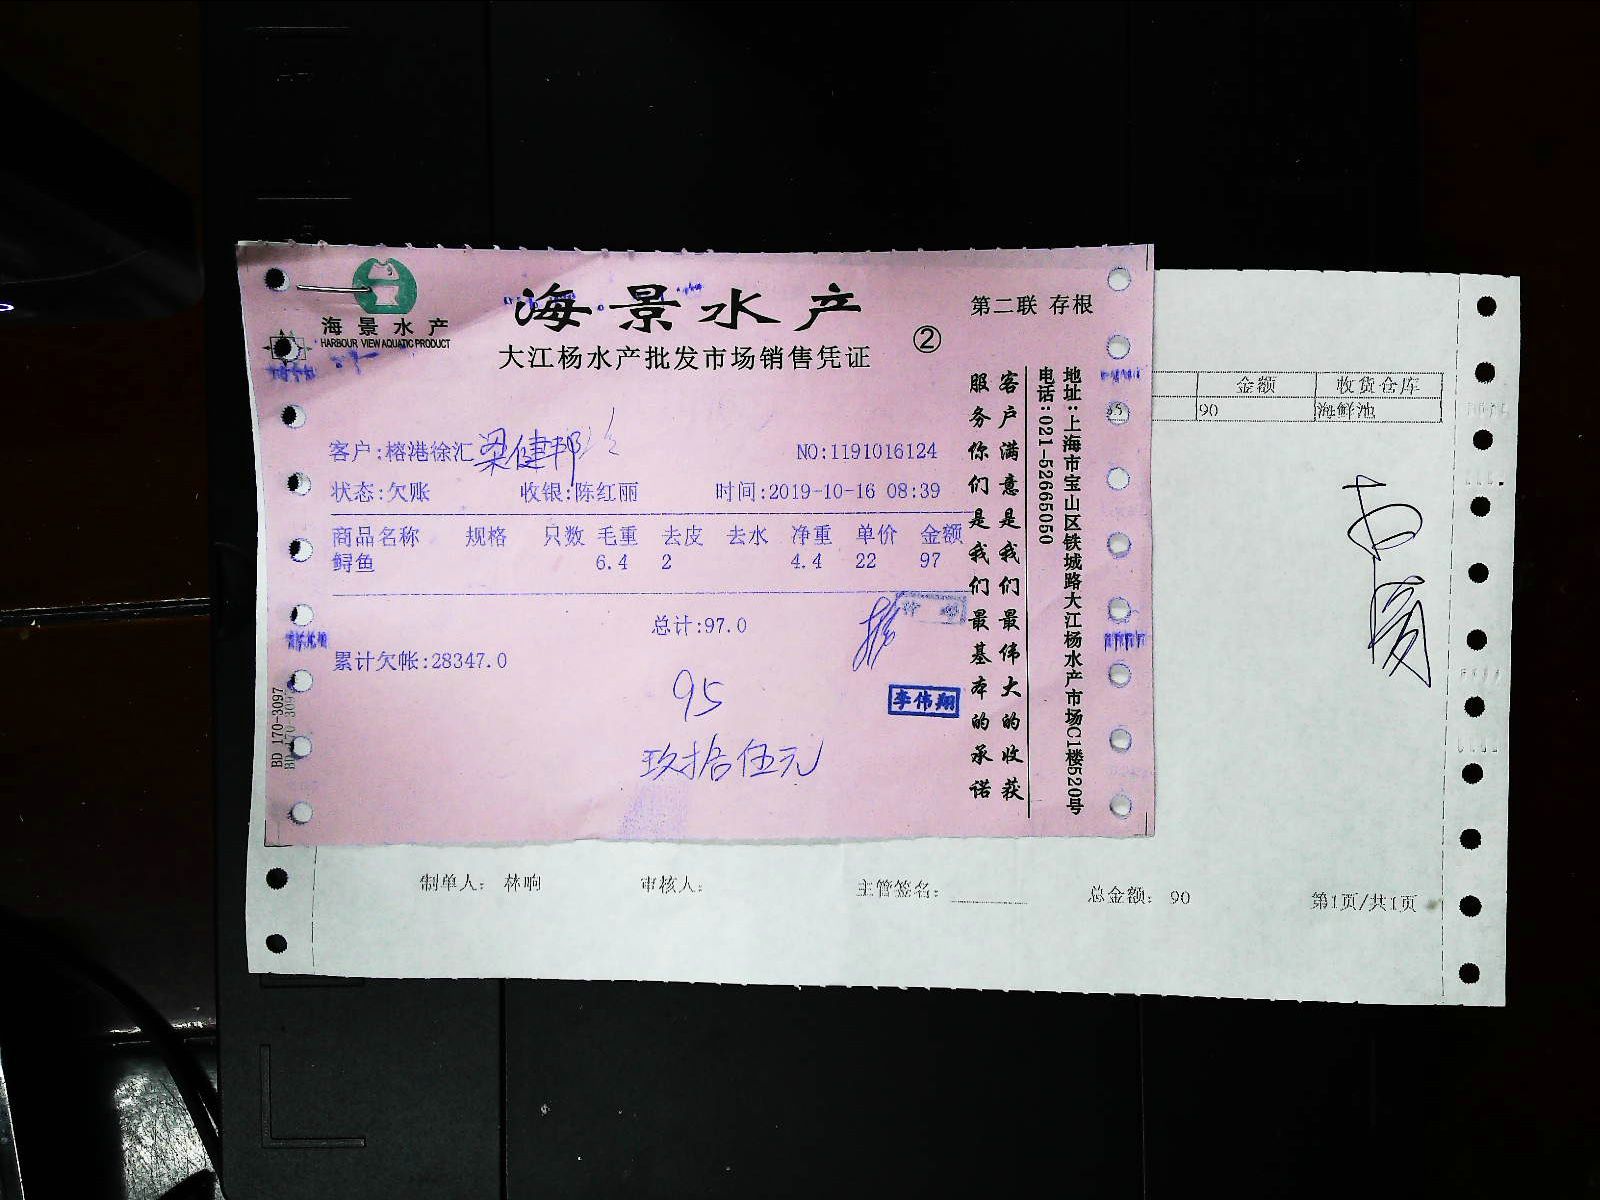 海景水产
HARBOUR VIEW AQUATIC PRODUCT
海景水产
大江杨水产批发市场销售凭证
②
第二联 存根
客户:榕港徐汇 梁健邦
NO:1191016124
状态:欠账 收银:陈红丽 时间:2019-10-16 08:39
商品名称 规格 只数 毛重 去皮 去水 净重 单价 金额
鲟鱼 6.4 2 4.4 22 97
总计:97.0
累计欠帐:28347.0
95
玖拾伍元
李伟翔
BD 170-3097
客户满意是我们最伟大的收获
服务你们是我们最基本的承诺
地址:上海市宝山区铁城路大江杨水产市场C1楼520号
电话:021-52665050
金额 收货仓库
90 海鲜池
制单人: 林响 审核人: 主管签名: 总金额: 90 第1页/共1页